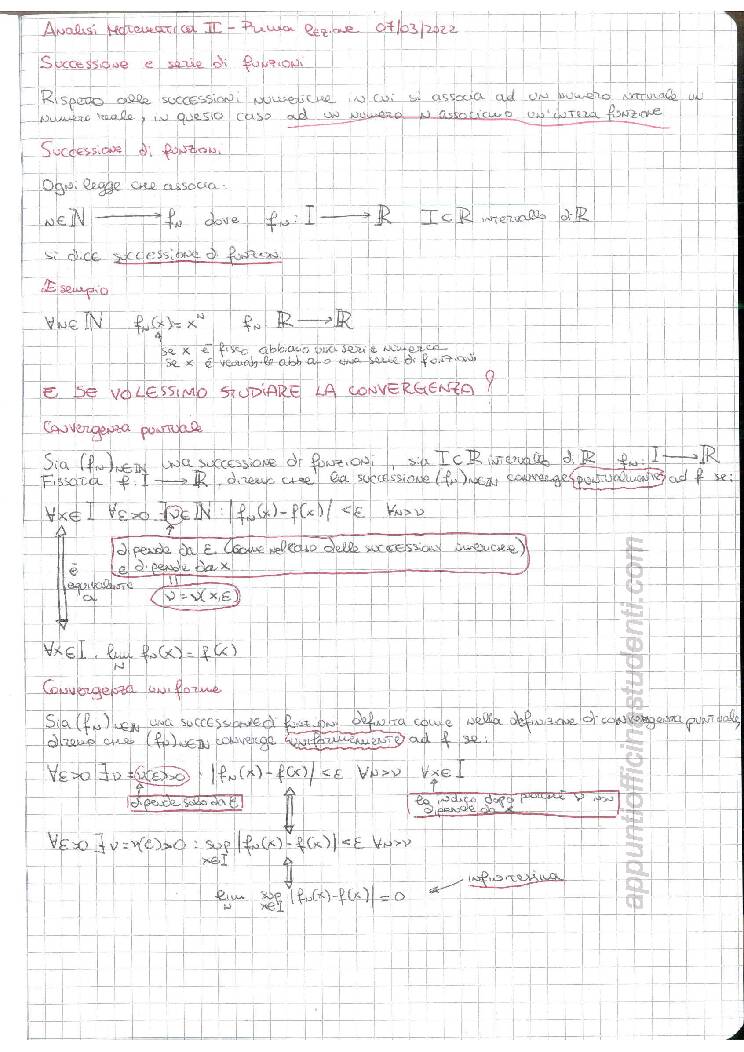 Analisi Matematica II - Prima lezione 07/03/2022
Successione e serie di funzioni
Rispetto alle successioni numeriche in cui si associa ad un numero naturale un
numero reale, in questo caso ad un numero n associamo un'intera funzione
Successione di funzioni
Ogni legge che associa:
n∈ℕ ⟶ fₙ dove fₙ: I ⟶ ℝ I⊂ℝ intervallo di ℝ
si dice successione di funzioni
Esempio
∀n∈ℕ fₙ(x)=xⁿ fₙ: ℝ ⟶ ℝ
se x è fisso abbiamo una serie numerica
se x è variabile abbiamo una serie di funzioni
E SE VOLESSIMO STUDIARE LA CONVERGENZA?
Convergenza puntuale
Sia (fₙ)ₙ∈ℕ una successione di funzioni, sia I⊂ℝ intervallo di ℝ fₙ: I ⟶ ℝ
Fissata f: I ⟶ ℝ, diremo che la successione (fₙ)ₙ∈ℕ converge puntualmente ad f se:
∀x∈I ∀ε>0 ∃ν∈ℕ : |fₙ(x)-f(x)|<ε ∀n>ν
dipende da ε (come nel caso delle successioni numeriche)
e dipende da x
ν=ν(x,ε)
è
equivalente
a
∀x∈I, lim fₙ(x)=f(x)
n
Convergenza uniforme
Sia (fₙ)ₙ∈ℕ una successione di funzioni definita come nella definizione di convergenza puntuale,
diremo che (fₙ)ₙ∈ℕ converge uniformemente ad f se:
∀ε>0 ∃ν=ν(ε)>0 : |fₙ(x)-f(x)|<ε ∀n>ν ∀x∈I
dipende solo da ε
lo indico dopo perché ν non
dipende da x
∀ε>0 ∃ν=ν(ε)>0 : sup |fₙ(x)-f(x)|<ε ∀n>ν
x∈I
lim sup |fₙ(x)-f(x)|=0 infinitesima
n x∈I
appuntiofficinastudenti.com